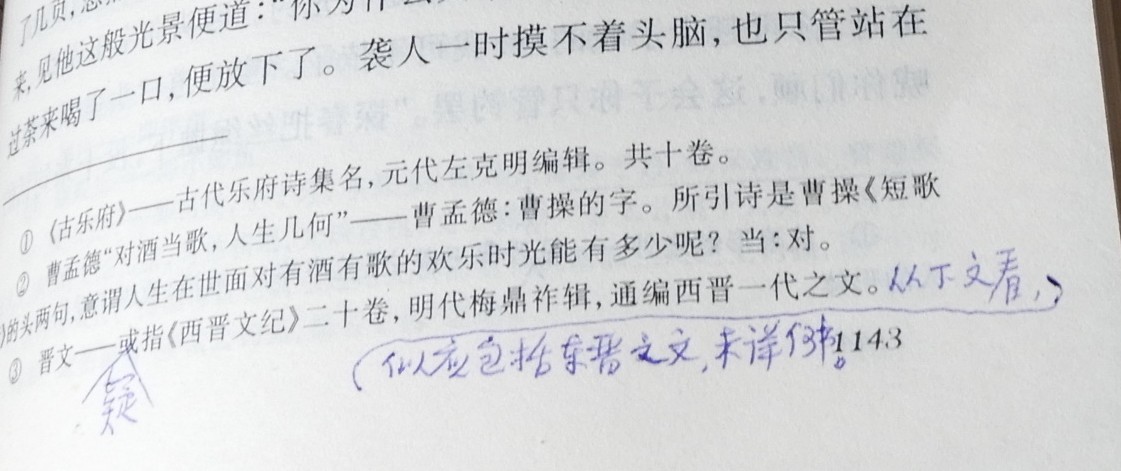 了几页,
来,见他这般光景便道:“你为什么
过茶来喝了一口,便放下了。袭人一时摸不着头脑,也只管站在
① 《古乐府》——古代乐府诗集名,元代左克明编辑。共十卷。
② 曹孟德“对酒当歌,人生几何”——曹孟德:曹操的字。所引诗是曹操《短歌
》的头两句,意谓人生在世面对有酒有歌的欢乐时光能有多少呢?当:对。
③ 晋文——或指《西晋文纪》二十卷,明代梅鼎祚辑,通编西晋一代之文。从下文看,
似应包括东晋文文,未详何书。
疑
1143